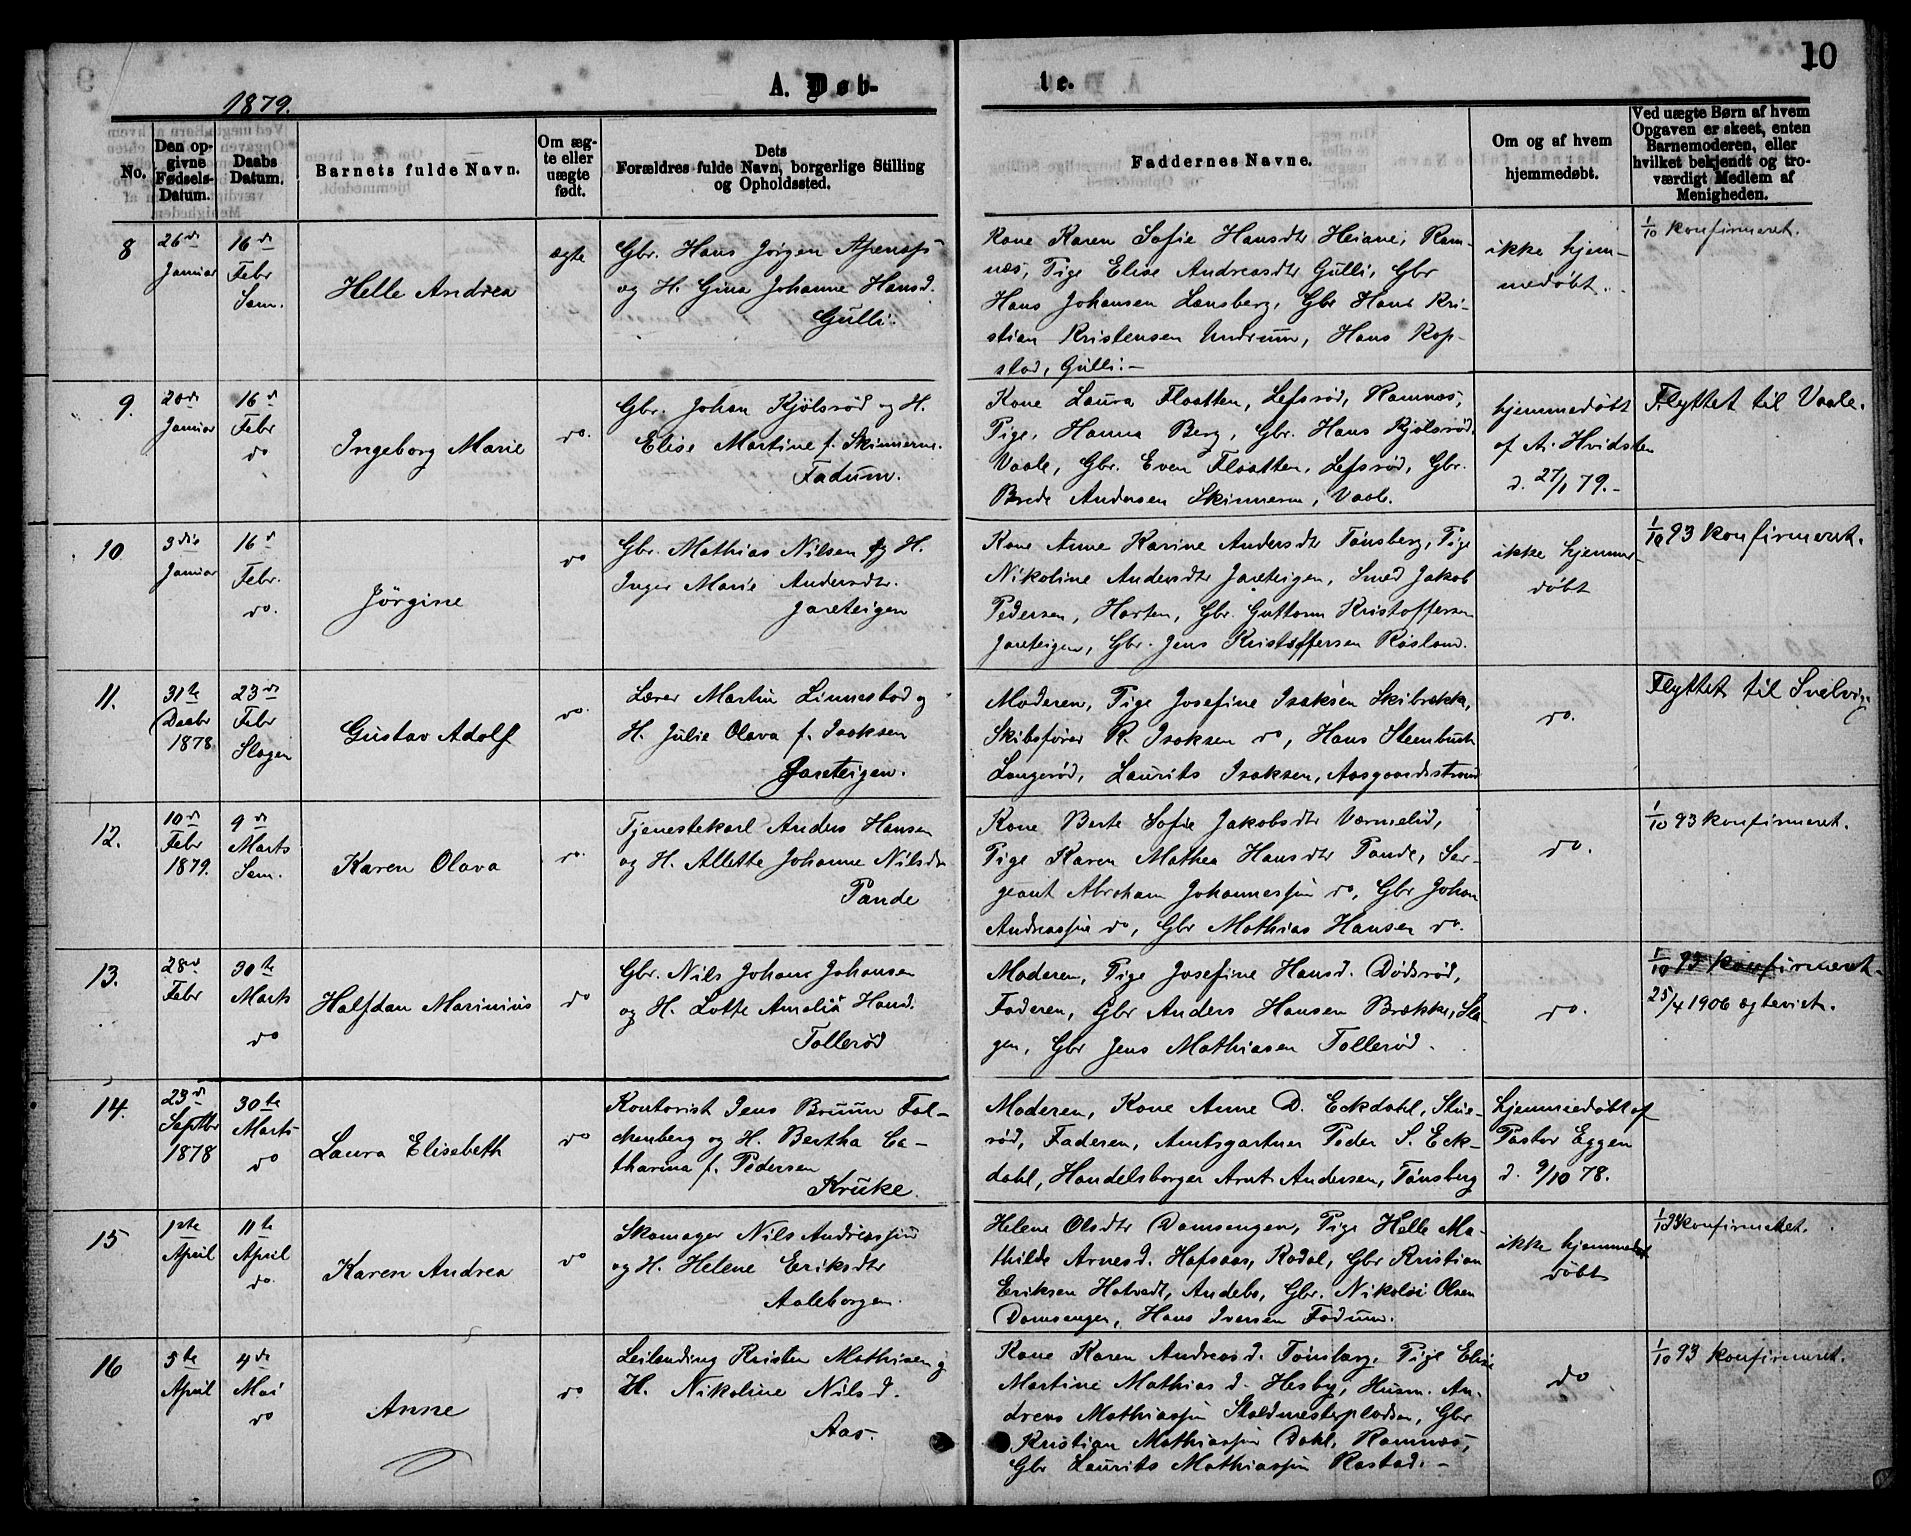 10
A. Døb-
te.
1879.
No.
Den op-
givne
Fødsels-
Datum.
Daabs
Datum.
Barnets fulde Navn.
Om æg-
te eller
uægte
født.
Dets
Forældres fulde Navn, borgerlige Stilling
og Opholdssted.
Faddernes Navne.
Om og af hvem
hjemmedøbt.
Ved uægte Børn af hvem
Opgaven er skeet, enten
Barnemoderen, eller
hvilket bekjendt og tro-
værdigt Medlem af
Menigheden.
8
26de
Januar
16de
Febr
Sem.
Helle Andrea
ægte
Gbr. Hans Jørgen
og H. Gina Johanne Hansd.
Gulli.
Kone Karen Sofie Hansdtr Heiane, Ram-
næs, Pige Elise Andreasdtr Gulli, Gbr
Hans Johansen Lensberg, Gbr Hans Kri-
stian Kristensen Undrum, Hans Kop-
stad, Gulli.-
ikke hjem-
medøbt.
1/10 konfirmeret.
9.
20de
Januar
16d
Febr
do
Ingeborg Marie
do.
Gbr. Johan Kjølsrød og H.
Elise Martine f. Skinneme.
Fadum.
Kone Laura Flaatten, Lefsrød, Ramnæs,
Pige, Hanna Berg, Gbr. Hans Kjølsrød,
Vaale, Gbr. Even Flaatten, Lefsrød, Gbr.
Brede Andersen Skinneme, Vaale.
hjemmedøbt
af A. Hvidsten
d. 27/1 79.-
Flyttet til Vaale.
10
3die
Januar
16d
Febr.
do.
Jørgine
do
Gbr. Mathias Nilsen og H.
Inger Marie Andersdtr.
Jareteigen
Kone Anne Karine Andersdtr Tønsberg, Pige
Nikoline Andersdtr Jareteigen, Smed Jakob
Pedersen, Horten, Gbr. Guttorm Kristoffersen
Jareteigen, Gbr. Jens Kristoffersen Røsland.
ikke hjemme
døbt
1/10 93 konfirmeret.
11.
31te
Decbr
1878
23de
Febr
Slagen
Gustav Adolf
do.
Lærer Martin Linnestad og
H. Julie Olava f. Isaksen
Jareteigen.
Moderen, Pige Josefine Isaksen Skibrekke,
Skibsfører R. Isaksen do, Hans Steenbuch
Langerød, Laurits Isaksen, Aasgaardsstrand
do.
Flyttet til Svelvig.
12.
10d
Febr
1879.
9de
Marts
Sem.
Karen Olava
do.
Tjenestekarl Anders Hansen
og H. Allette Johanne Nilsdtr
Pande
Kone Berte Sofie Jakobsdtr Værmelid,
Pige Karen Mathea Hansdtr Pande, Ser-
geant Abraham Johannessøn do, Gbr Johan
Andreassøn do, Gbr Mathias Hansen do.
do.
1/10 93 konfirmeret.
13.
28de
Febr
30te
Marts
do
Halfdan Marinius
do
Gbr. Nils Johan Johansen
og H. Lotte Amelia Hansd.
Tollerød
Moderen, Pige Josefine Hansd. Dødsrød,
Faderen, Gbr Anders Hansen Brække, Sla-
gen, Gbr Jens Mathiasen Tollerød.
do.
1/10 93 konfirmeret.
25/4 1906 ægteviet.
14.
23de
Septbr
1878
30te
Marts
do
Laura Elisabeth
do
Kontorist Jens Bruun Fal-
ckenberg og H. Bertha Ca-
tharina f. Pedersen
Kruke.
Moderen, Kone Anne D. Eckdahl, Stue-
rød, Faderen, Amtsgartner Peder S. Eck-
dahl, Handelsborger Arnt Andersen, Tønsberg
hjemmedøbt af
Pastor Eggen
d. 9/10 78.
15
1ste
April
11te
April
do.
Karen Andrea
do
Skomager Nils Andreassøn
og H. Helene Eriksdtr
Aaleborgen.
Helene Olsdtr Damsengen, Pige Helle Ma-
thilde Arnesd. Hafsaas, Rødal, Gbr Kristian
Eriksen Hotvedt, Andebo, Gbr. Nikolai Olsen
Damsengen, Hans Iversen Fadum.
ikke hjemme
døbt
1/10 93 konfirmeret.
16
5te
April
4de
Mai
do
Anne
do
Leilending Kristen Mathisen og
H. Nikoline Nilsd.
Aas.
Kone Karen Andreasd. Tønsberg, Pige Elise
Martine Mathiasd. Hesby, Husm. An-
dreas Mathiassøn Staldmesterpladsen, Gbr
Kristian Mathiassøn Dahl, Ramnæs,
Gbr Laurits Mathiassøn Rastad.-
do
1/10 93 konfirmeret.